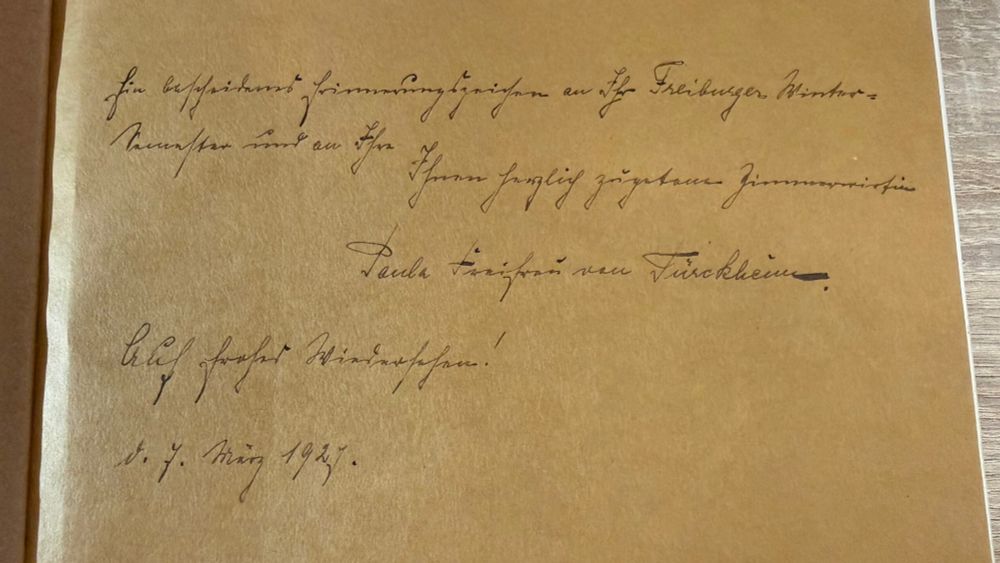 Ein bescheidenes Erinnerungszeichen an Ihr Freiburger Winter=
Semester und an Ihre
Ihnen herzlich zugetane Zimmerwirtin
Paula Freifrau von Türckheim.
Auf frohes Wiedersehen!
d. 7. März 1927.